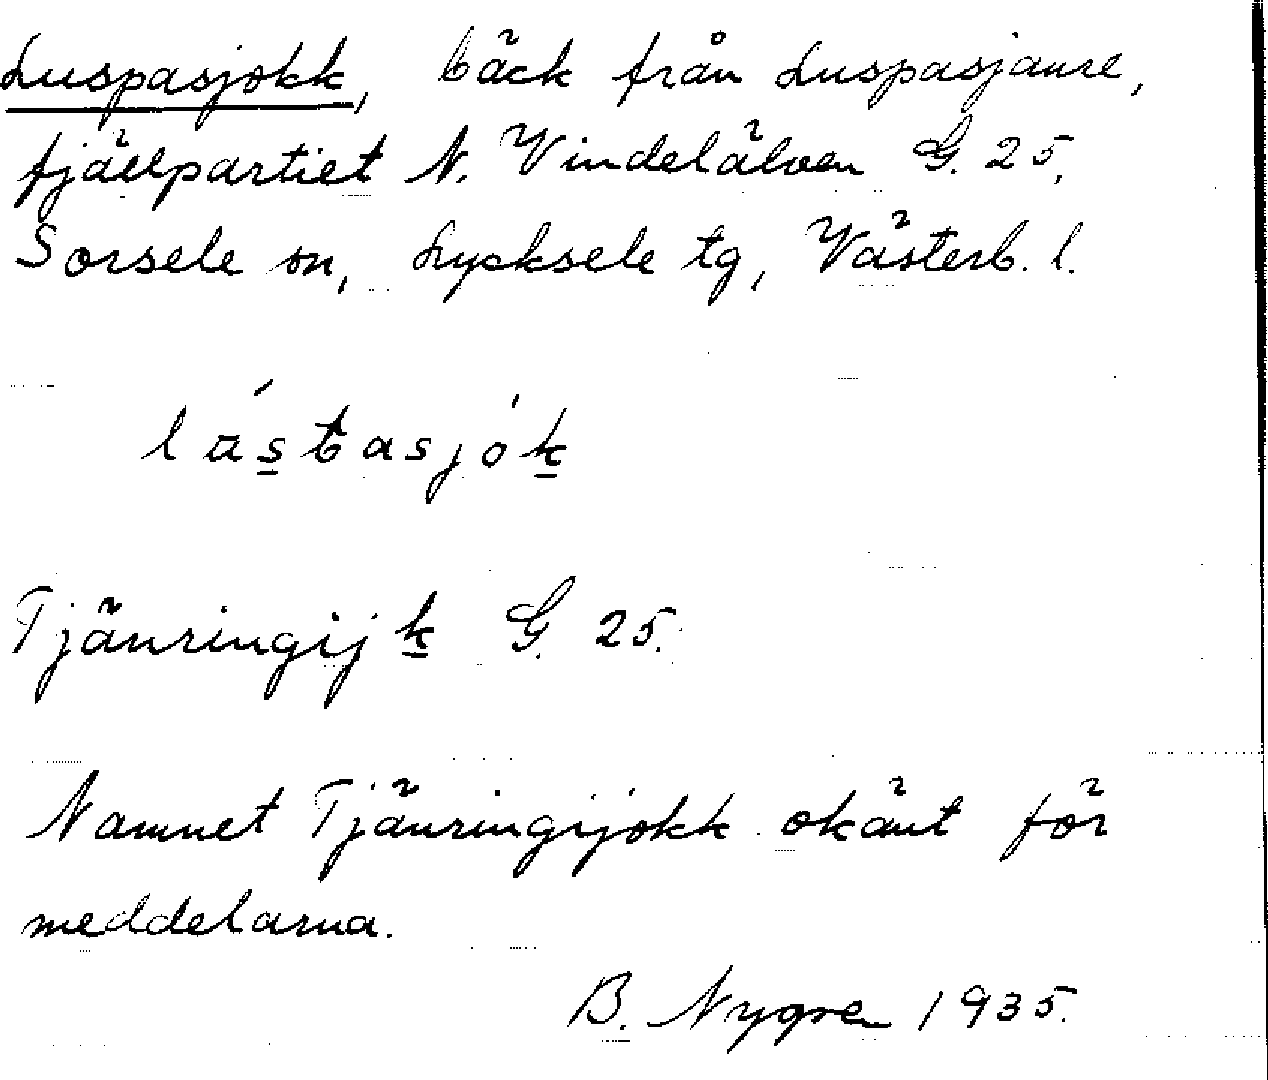 Luspasjokk, bäck från Luspasjaure,
fjällpartiet N. Vindelälven G. 25,
Sorsele sn, Lycksele tg, Västerb. l.
lástasjók
Tjäuringijk G. 25.
Namnet Tjäuringijokk okänt för
meddelarna.
B. Nygren 1935.